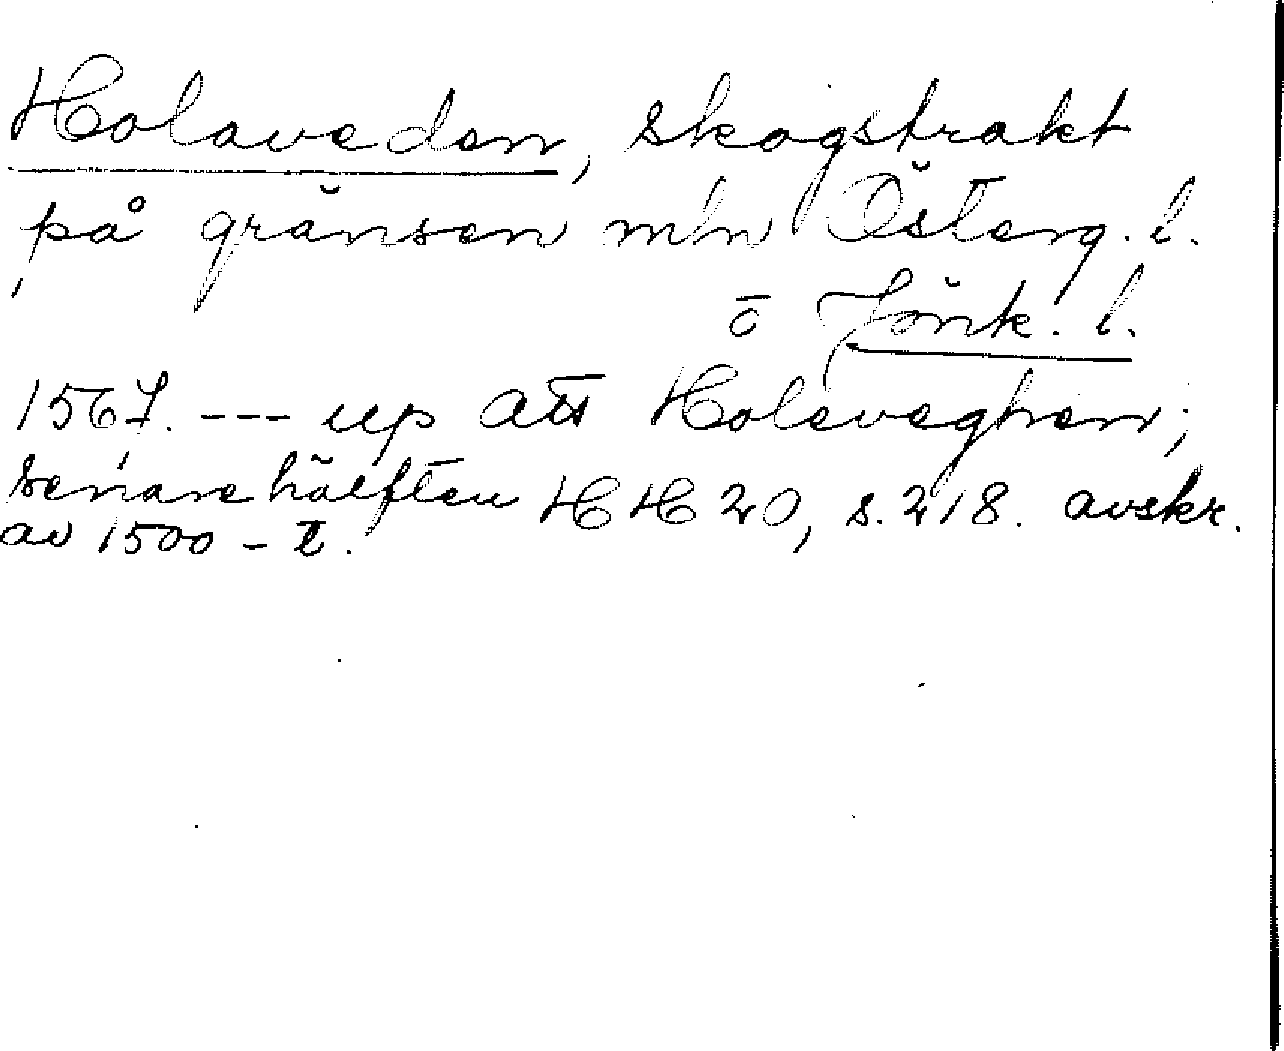 Holaveden, skogstrakt
på gränsen m'n Österg. l.
o Jönk. l.
1567. --- up att Holeveghen;
senare hälften HH 20, s. 218. avskr.
av 1500-t.